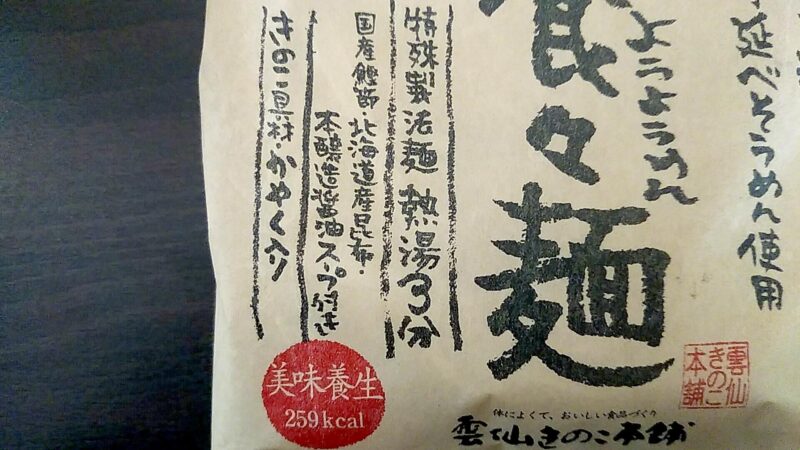 延べそうめん使用
ようようめん
養々麺
特殊製法麺 熱湯3分
国産鰹節・北海道産昆布・
本醸造醤油スープ付き
きのこ具材・かやく入り
美味養生
259kcal
雲仙
きのこ
本舗
体によくて、おいしい食品づくり
雲仙きのこ本舗